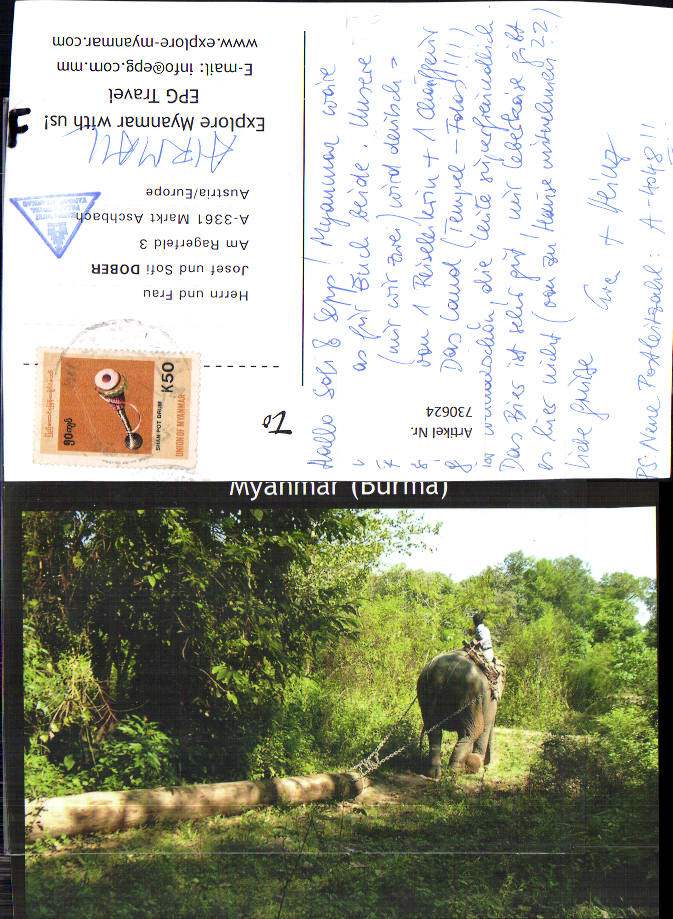 Hallo Sofi & Sepp! Myanmar wäre
as für Euch beide. Unsere
(nur wir zwei) wird deutsch=
von 1 Reiseleiterin + 1 Chauffeur
Das Land (Tempel-Foras!!!!)
ist wunderschön, die Leute superfreundlich
Das Bier ist sehr gut, nur Leberkäse gibt
es hier nicht (von zu Hause mitnehmen??)
Liebe Grüße
Eva + Heinz
PS: Neue Postleitzahl: A-4048!!
Artikel Nr.
730624
To
Herrn und Frau
Josef und Sofi DOBER
Am Ragerfeld 3
A-3361 Markt Aschbach
Austria/Europe
AIRMAIL
Explore Myanmar with us!
EPG Travel
E-mail: info@epg.com.mm
www.explore-myanmar.com
F
K50
SHAN POT DRUM
UNION OF MYANMAR
Myanmar (Burma)